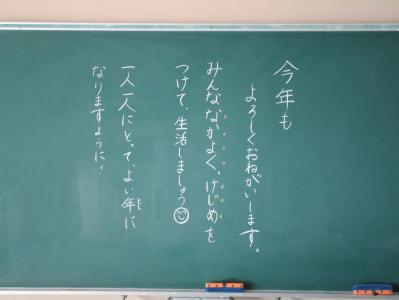 今年も
よろしくおねがいします。
みんななかよく、けじめを
つけて、生活しましょう
一人一人にとって、よい年に
なりますように!